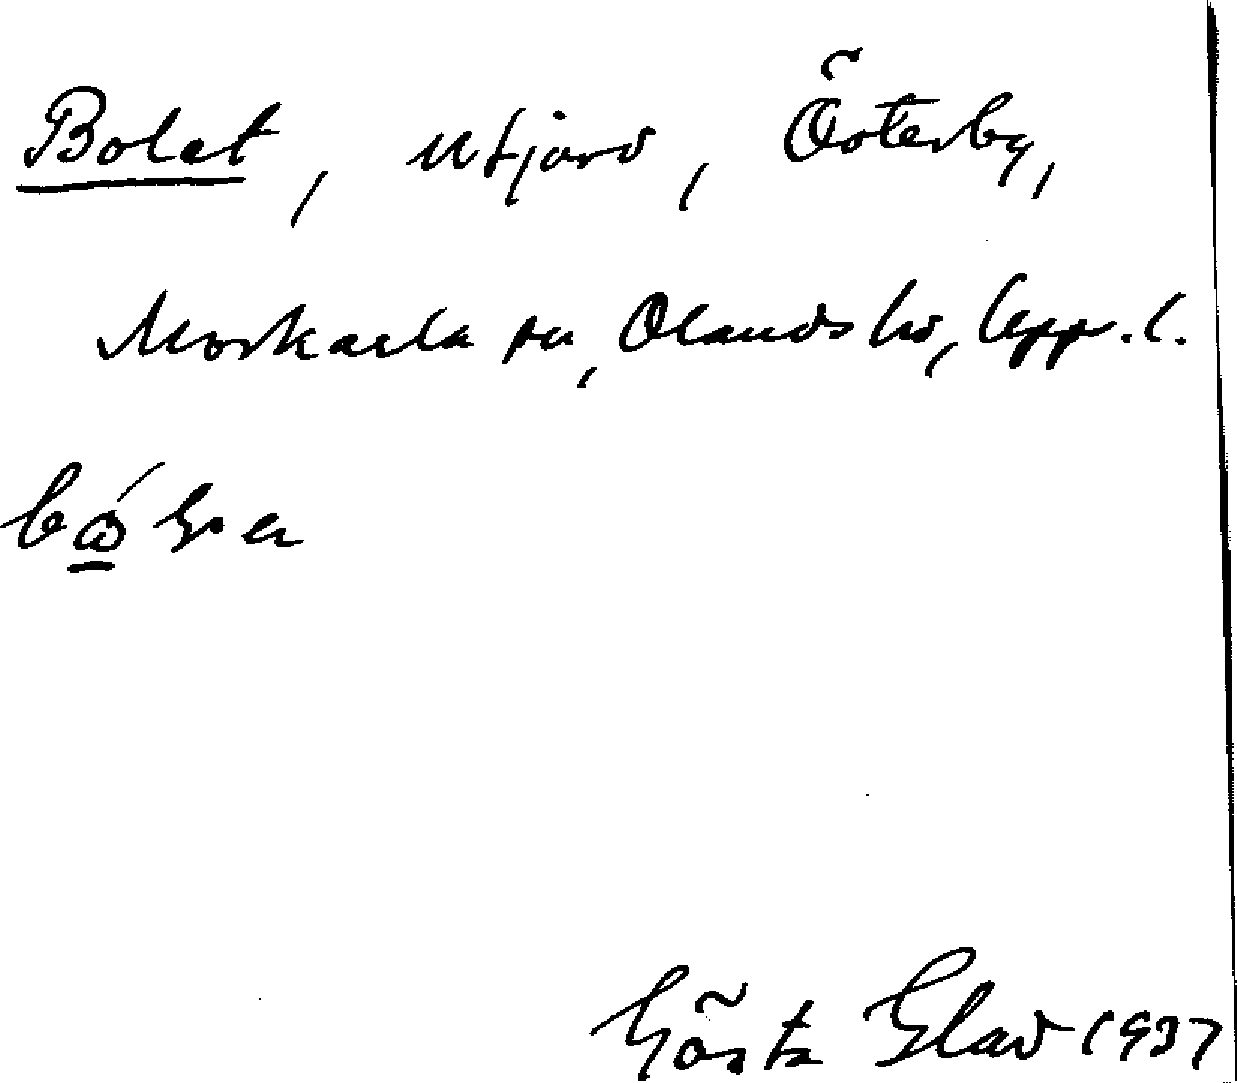 Bolet, utjord, Österby,
Morkarla sn, Olands hd, Uppl.
Gösta Elad 1937